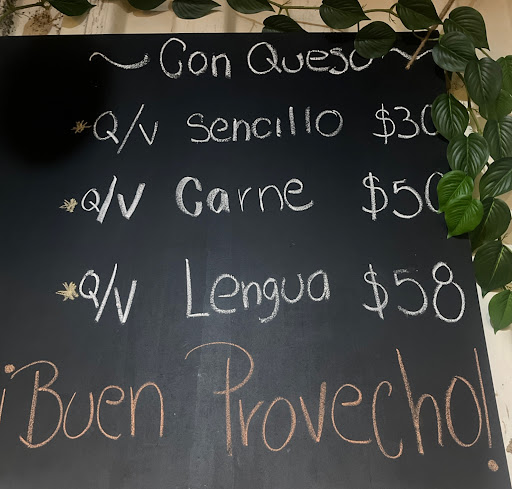 ~ Con Queso ~
* Q/V Sencillo $30
* Q/V Carne $50
* Q/V Lengua $58
¡Buen Provecho!